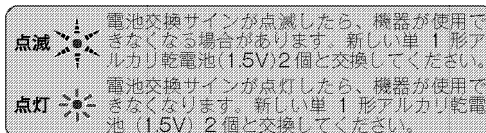 点滅
電池交換サインが点滅したら、機器が使用で
きなくなる場合があります。新しい単 1 形ア
ルカリ乾電池(1.5V)2個と交換してください。
点灯
電池交換サインが点灯したら、機器が使用で
きなくなります。新しい単 1 形アルカリ乾電
池 (1.5V) 2個と交換してください。